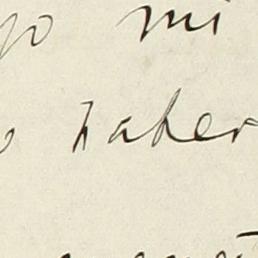 yo mi
o haber